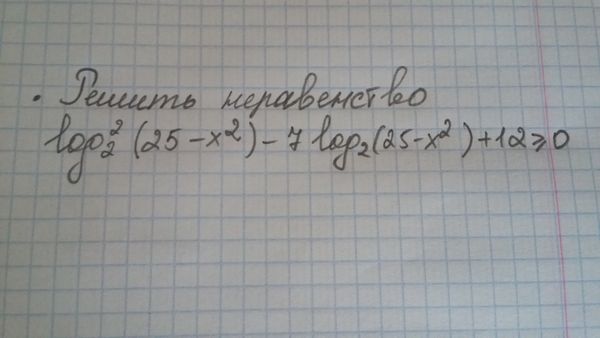 . Решить неравенство
log₂² (25 - x²) - 7 log₂ (25 - x²) + 12 ⩾ 0